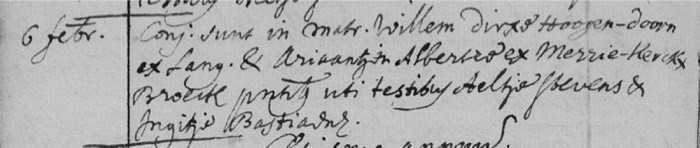 6 febr. Conj. sunt in matr. Willem dirxe Hoogen-doorn
ex Lang. & Ariaantjen Alberts ex Merrie-Kerck
Broeck pntib uti testibus Aeltje stevens &
Ingitje Bastiaenz.